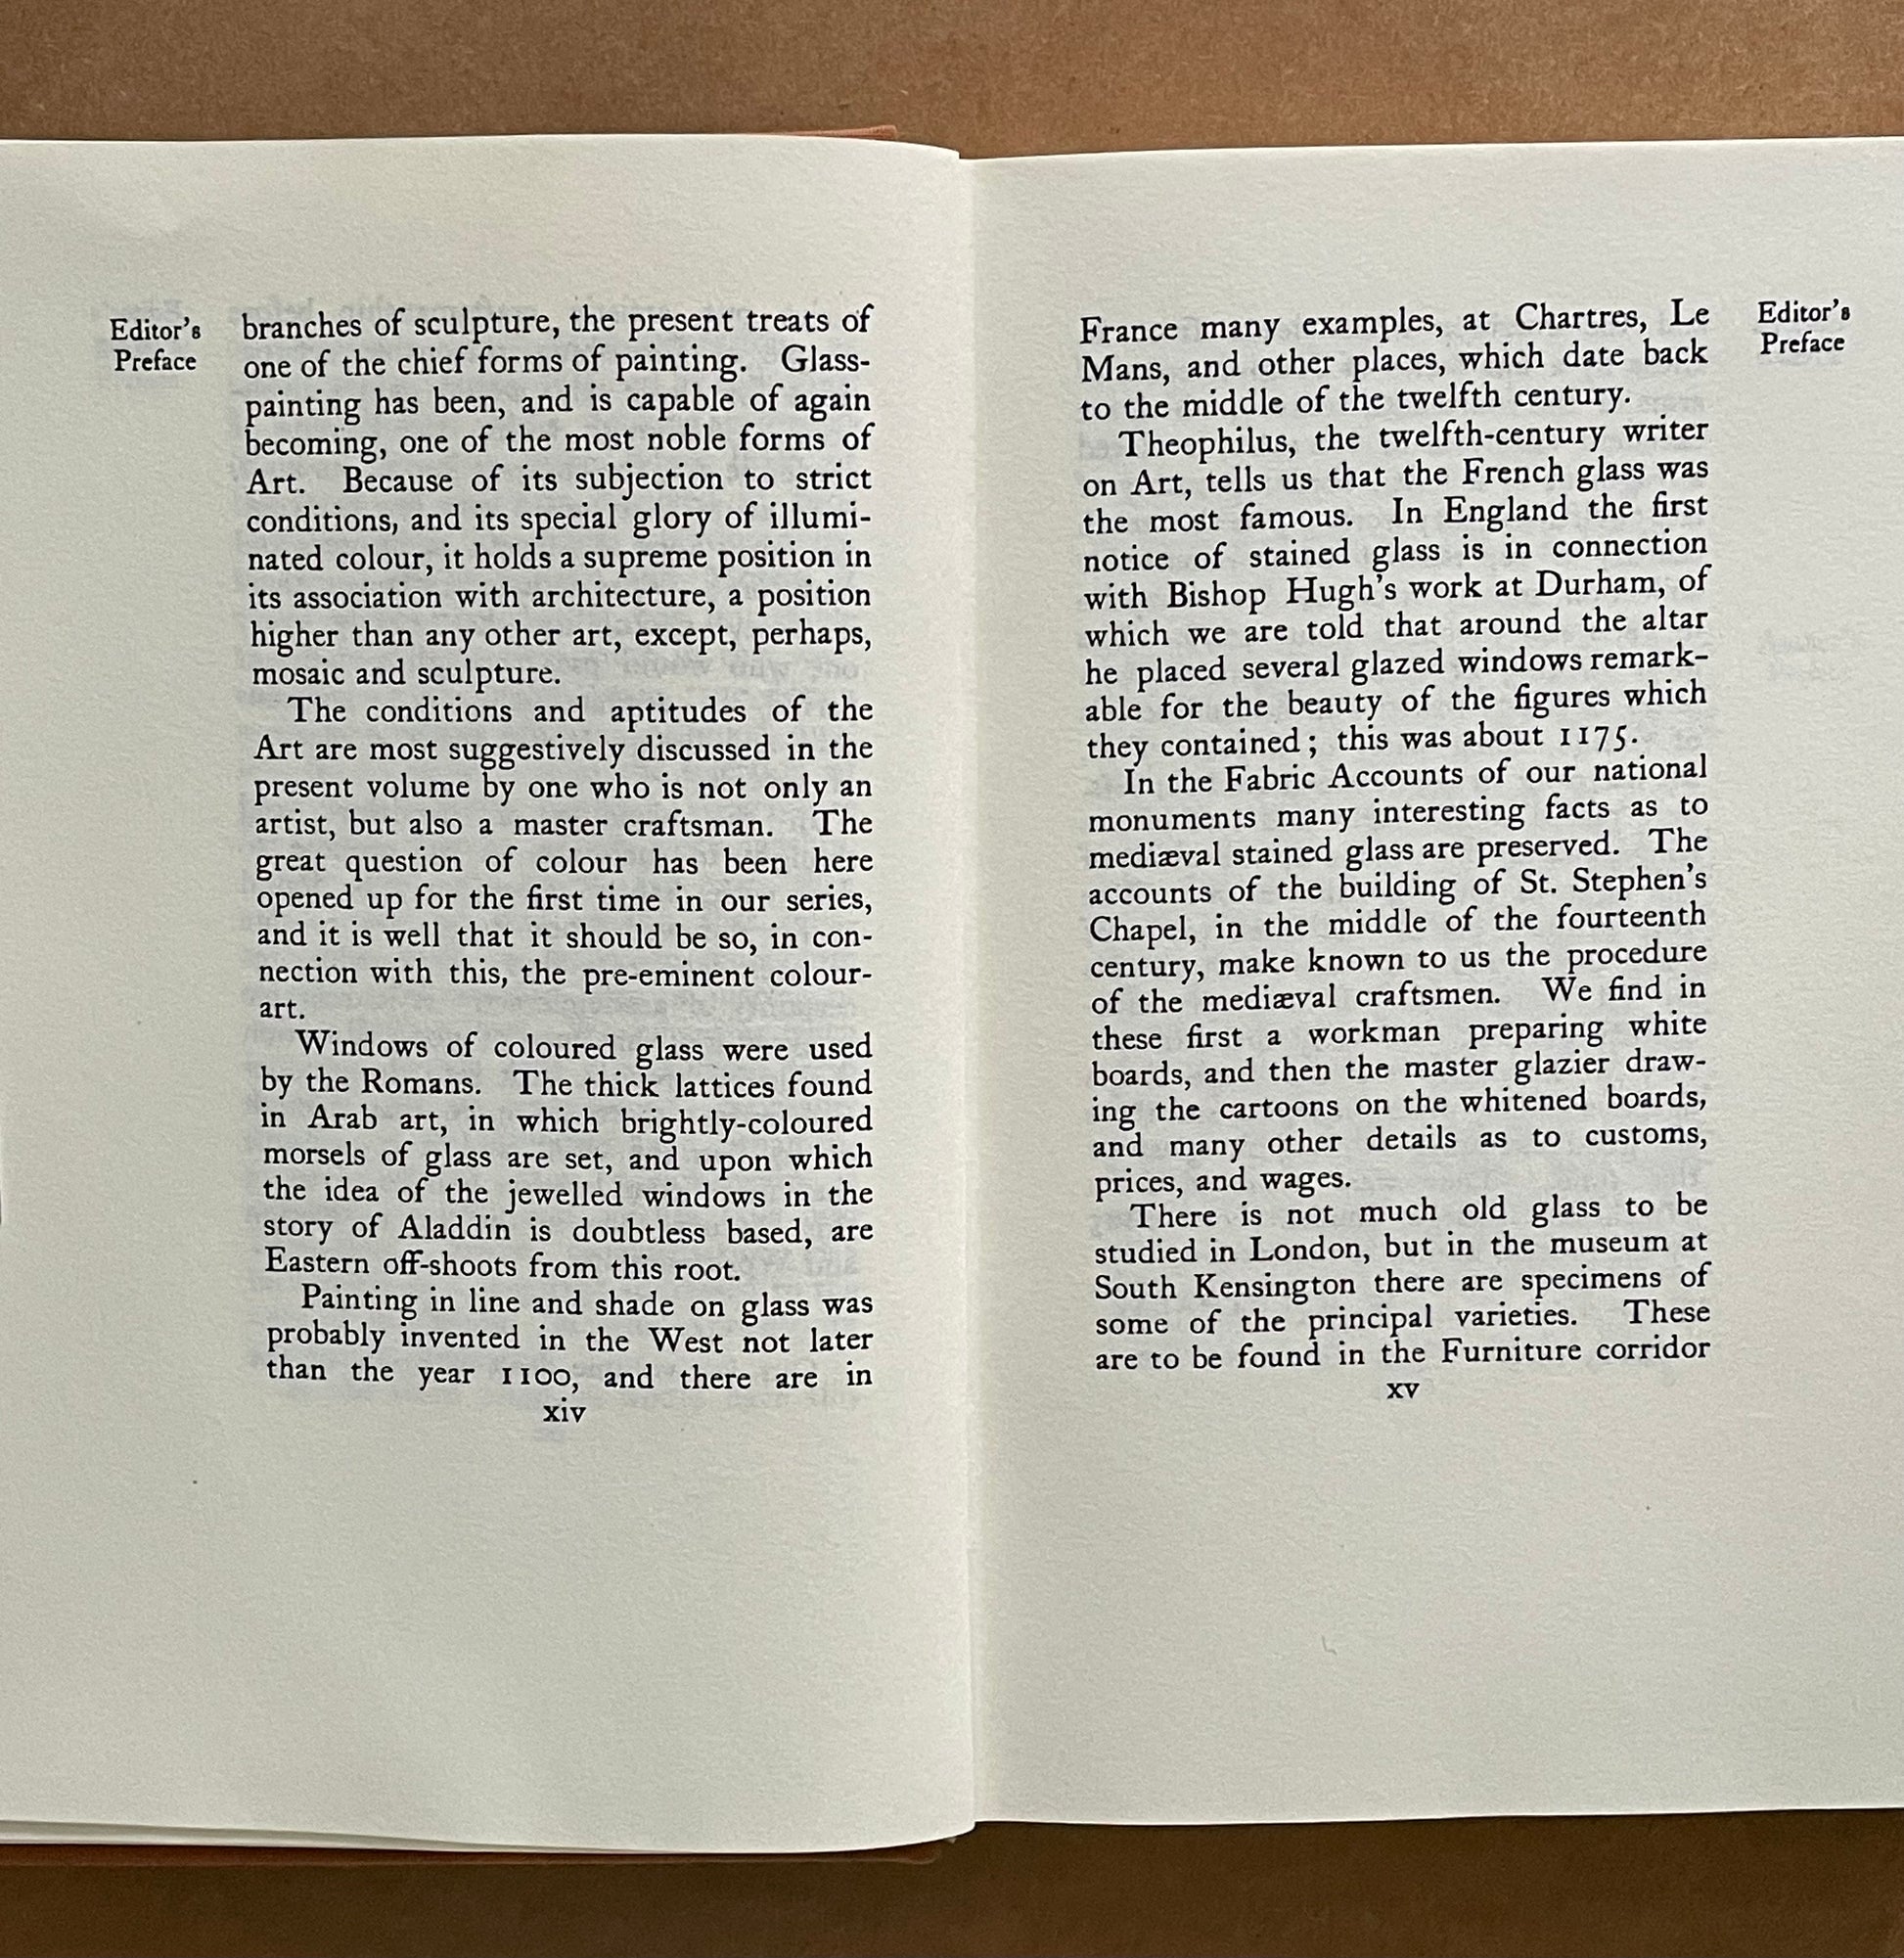 Editor's
Preface
branches of sculpture, the present treats of
one of the chief forms of painting. Glass-
painting has been, and is capable of again
becoming, one of the most noble forms of
Art. Because of its subjection to strict
conditions, and its special glory of illumi-
nated colour, it holds a supreme position in
its association with architecture, a position
higher than any other art, except, perhaps,
mosaic and sculpture.
The conditions and aptitudes of the
Art are most suggestively discussed in the
present volume by one who is not only an
artist, but also a master craftsman. The
great question of colour has been here
opened up for the first time in our series,
and it is well that it should be so, in con-
nection with this, the pre-eminent colour-
art.
Windows of coloured glass were used
by the Romans. The thick lattices found
in Arab art, in which brightly-coloured
morsels of glass are set, and upon which
the idea of the jewelled windows in the
story of Aladdin is doubtless based, are
Eastern off-shoots from this root.
Painting in line and shade on glass was
probably invented in the West not later
than the year 1100, and there are in
xiv
Editor's
Preface
France many examples, at Chartres, Le
Mans, and other places, which date back
to the middle of the twelfth century.
Theophilus, the twelfth-century writer
on Art, tells us that the French glass was
the most famous. In England the first
notice of stained glass is in connection
with Bishop Hugh's work at Durham, of
which we are told that around the altar
he placed several glazed windows remark-
able for the beauty of the figures which
they contained; this was about 1175.
In the Fabric Accounts of our national
monuments many interesting facts as to
mediæval stained glass are preserved. The
accounts of the building of St. Stephen's
Chapel, in the middle of the fourteenth
century, make known to us the procedure
of the mediæval craftsmen. We find in
these first a workman preparing white
boards, and then the master glazier draw-
ing the cartoons on the whitened boards,
and many other details as to customs,
prices, and wages.
There is not much old glass to be
studied in London, but in the museum at
South Kensington there are specimens of
some of the principal varieties. These
are to be found in the Furniture corridor
xv